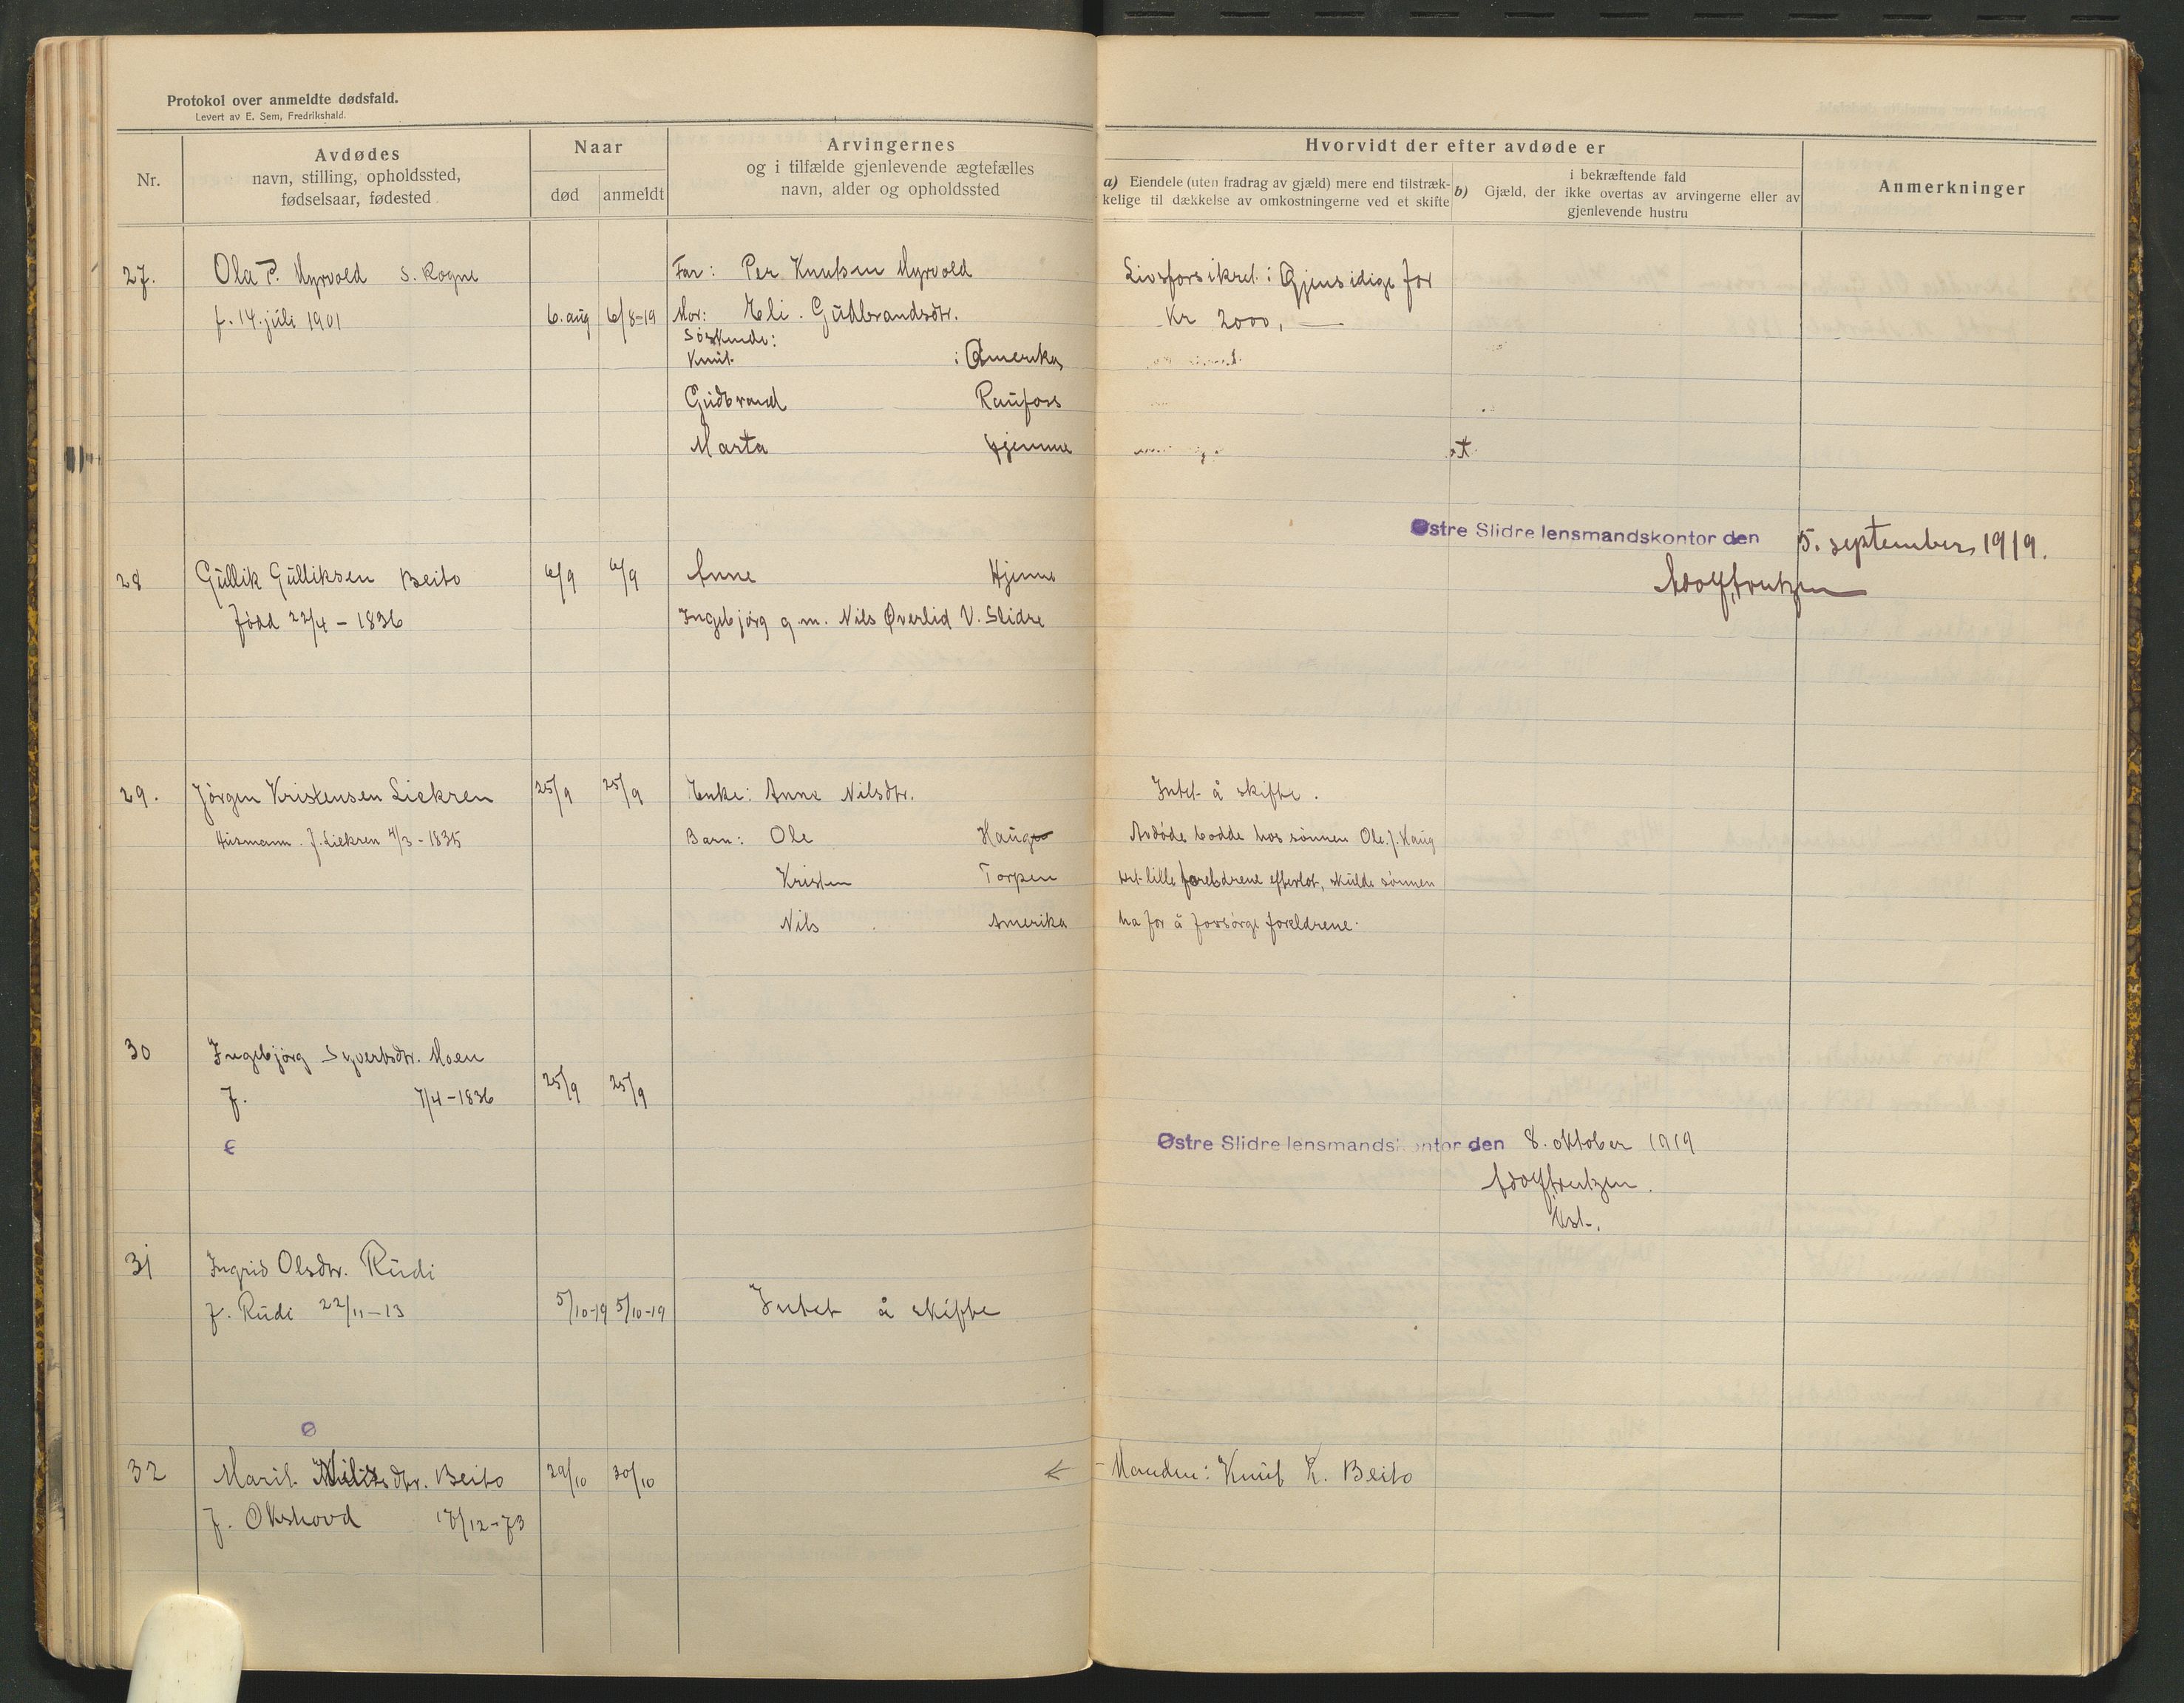 Protokol over anmeldte dødsfald.
Levert av E. Sem, Fredrikshald.
Nr.
Avdødes
navn, stilling, opholdssted,
fødselsaar, fødested
Naar
død
anmeldt
Arvingernes
og i tilfælde gjenlevende ægtefælles
navn, alder og opholdssted
Hvorvidt der efter avdøde er
a) Eiendele (uten fradrag av gjæld) mere end tilstræk-
kelige til dækkelse av omkostningerne ved et skifte
i bekræftende fald
b) Gjæld, der ikke overtas av arvingerne eller av
gjenlevende hustru
Anmerkninger
27. Ola P. Myrvold S. Rogne
f. 14. juli 1901 6. aug 6/8-19
Far: Per Knutsen Myrvold
Mor: Eli Gudbrandsdtr.
Søskende:
Knut i Amerika
Gudbrand Raufoss
Marta hjemme
Livsforsikret i Gjensidige for
Kr 2000,—
Østre Slidre lensmandskontor den 5. september 1919.
28 Gullik Gulliksen Beito 6/9 6/9 Anne Hjemme
Født 22/4 - 1836 Ingebjørg g. m. Nils Øverlid V. Slidre
29. Jørgen Kristensen Liekren 25/9 25/9 Enke: Anne Nilsdtr. Intet å skifte.
Husmann. f. Liekren 4/3 - 1835 Barn: Ole Haug
Kristen Torpen
Nils Amerika
Avdøde bodde hos sønnen Ole J. Haug
det lille foreldrene efterlot, skulde sønnen
ha for å forsørge foreldrene.
30 Ingebjørg Syvertsdtr. Moen
f. 7/4-1836 25/9 25/9
Østre Slidre lensmandskontor den 8. oktober 1919
31 Ingrid Olsdtr. Rudi
f. Rudi 22/11-13 5/10-19 5/10-19 Intet å skifte
Ø
32 Marit Nilsdtr. Beito 29/10 30/10 Manden: Knut K. Beito
f. Okshovd 17/12-73